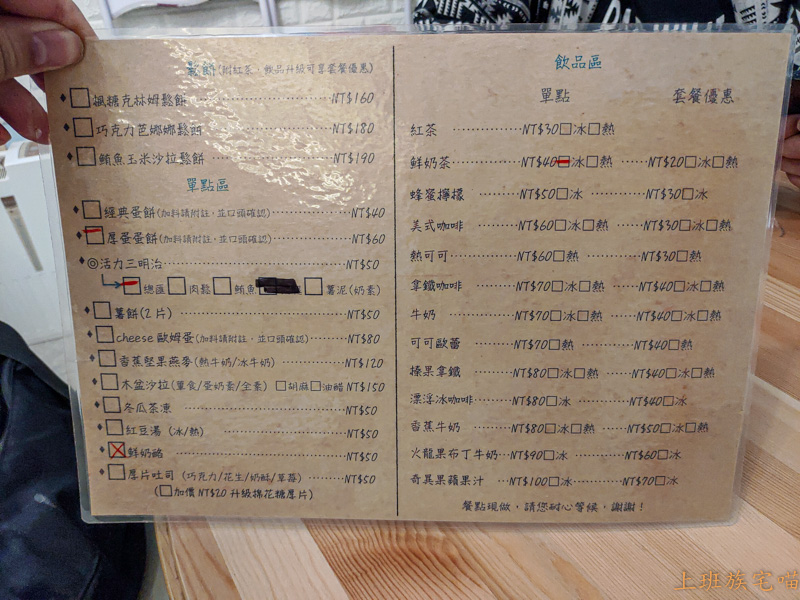 鬆餅(附紅茶，飲品升級可享套餐優惠)
楓糖克林姆鬆餅 NT$160
巧克力芭娜娜鬆餅 NT$180
鮪魚玉米沙拉鬆餅 NT$190
單點區
經典蛋餅(加料請附註，並口頭確認) NT$40
厚蛋蛋餅(加料請附註，並口頭確認) NT$60
◎活力三明治 NT$50
□總匯 □肉鬆 □鮪魚 □薯泥(奶素)
薯餅(2片) NT$50
cheese歐姆蛋(加料請附註，並口頭確認) NT$80
香蕉堅果燕麥(熱牛奶/冰牛奶) NT$120
木盆沙拉(葷食/蛋奶素/全素) □胡麻□油醋 NT$150
冬瓜茶凍 NT$50
紅豆湯 (冰/熱) NT$50
鮮奶酪 NT$50
厚片吐司 (巧克力/花生/奶酥/草莓) NT$50
(□加價NT$20升級棉花糖厚片)
飲品區
單點 套餐優惠
紅茶 NT$30□冰□熱
鮮奶茶 NT$40□冰□熱 NT$20□冰□熱
蜂蜜檸檬 NT$50□冰 NT$30□冰
美式咖啡 NT$60□冰□熱 NT$30□冰□熱
熱可可 NT$60□熱 NT$30□熱
拿鐵咖啡 NT$70□冰□熱 NT$40□冰□熱
牛奶 NT$70□冰□熱 NT$40□冰□熱
可可歐蕾 NT$70□熱 NT$40□熱
榛果拿鐵 NT$80□冰□熱 NT$40□冰□熱
漂浮冰咖啡 NT$80□冰 NT$40□冰
香蕉牛奶 NT$80□冰□熱 NT$50□冰□熱
火龍果布丁牛奶 NT$90□冰 NT$60□冰
奇異果蘋果汁 NT$100□冰 NT$70□冰
餐點現做，請您耐心等候，謝謝！
上班族宅喵